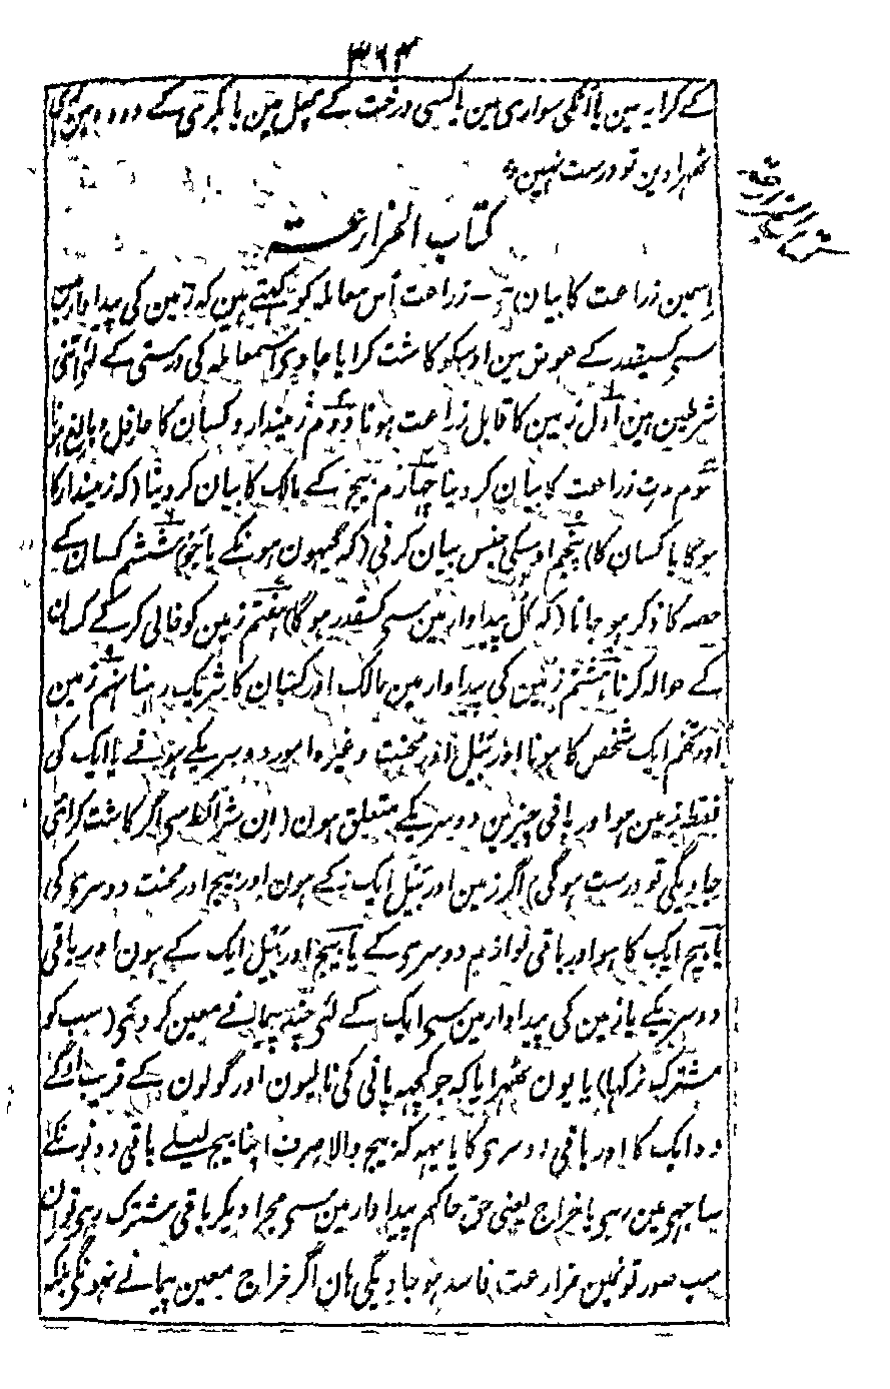 ۳۶۳
کے کرایہ مین یا انکی سواری مین یا کسی درخت کے پھل مین یا بکری کے دودہ مین
ٹھہرا دین تو درست نہین
کتاب المزارعت
اسمین زراعت کا بیان ہے۔ زراعت اُس معاملہ کو کہتے ہین کہ زمین کی پیداوار مین
سے کسیقدر کے عوض مین اوسکو کاشت کرایا جاوے اسمعاملہ کی درستی کے لئے اتنی
شرطین ہین اول زمین کا قابل زراعت ہونا دوم زمیندار و کسان کا عاقل و بالغ ہونا
سوم مدت زراعت کا بیان کر دینا چہارم بیج کے مالک کا بیان کر دینا (کہ زمیندار کا
ہوگا یا کسان کا) پنجم اوسکی جنس بیان کرنی (کہ گیہون ہونگے یا جو) ششم کسان کے
حصہ کا ذکر ہو جانا (کہ کل پیداوار مین سے کسقدر ہوگا) ہفتم زمین کو خالی کر کے کسان
کے حوالہ کرنا ہشتم زمین کی پیداوار مین مالک اور کسان کا شریک رہنا نہم زمین
اور تخم ایک شخص کا ہونا اور بیل اور محنت وغیرہ امور دوسریکے ہونے یا ایک کی
فقط زمین ہو اور باقی چیزین دوسریکے متعلق ہون (ان شرائط سے اگر کاشت کرائی
جاویگی تو درست ہوگی) اگر زمین اور بیل ایک کے ہون اور بیج اور محنت دوسرے کی
یا بیج ایک کا ہو اور باقی لوازم دوسرے کے یا بیج اور بیل ایک کے ہون اور باقی
دوسریکے یا زمین کی پیداوار مین سے ایک کے لئے چند پیمانے معین کر دئے (سب کو
مشترک نرکہا) یا یون ٹھہرایا کہ جو کچہہ پانی کی نالیون اور گولون کے قریب اوگے
وہ ایک کا اور باقی دوسرے کا یا یہہ کہ بیج والا صرف اپنا بیج لیلے باقی دونونکے
ساجہے مین رہے یا خراج یعنی حق حاکم پیداوار مین سے مجرا دیکر باقی مشترک رہے تو ان
سب صورتونمین مزارعت فاسد ہو جاویگی ہان اگر خراج معین پیمانے نہونگے بلکہ